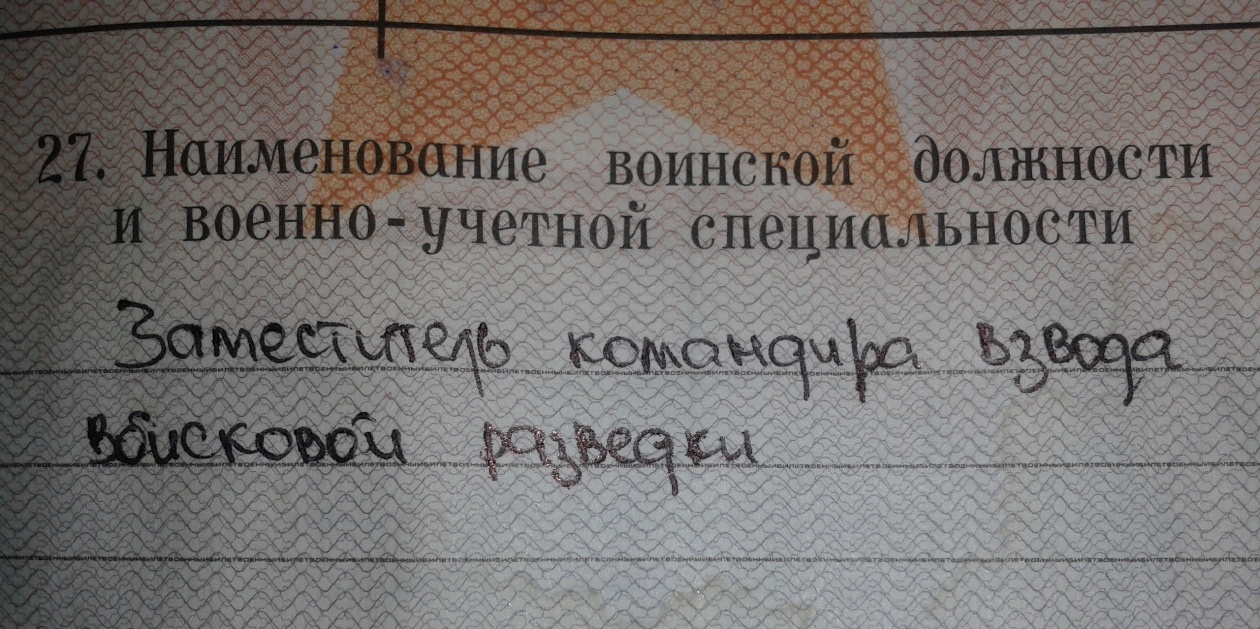 27. Наименование воинской должности
и военно-учетной специальности
Заместитель командира взвода
войсковой разведки